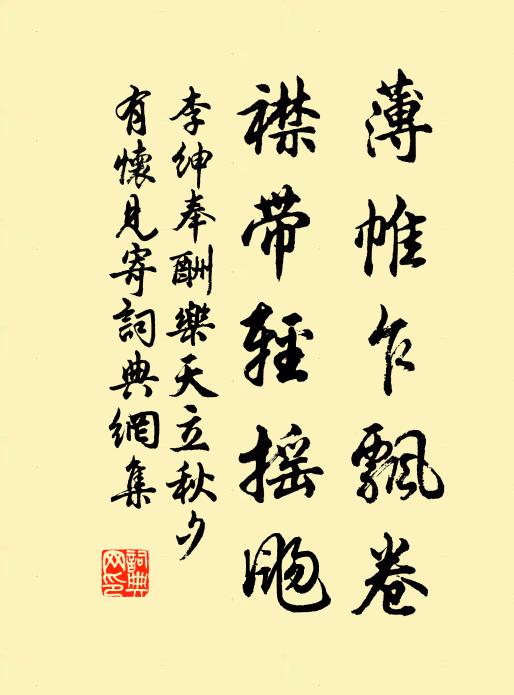 薄帷乍飄卷
襟帶輕摇颺
李紳奉酬樂天立秋夕
有懷見寄詞典網集
詞典網印